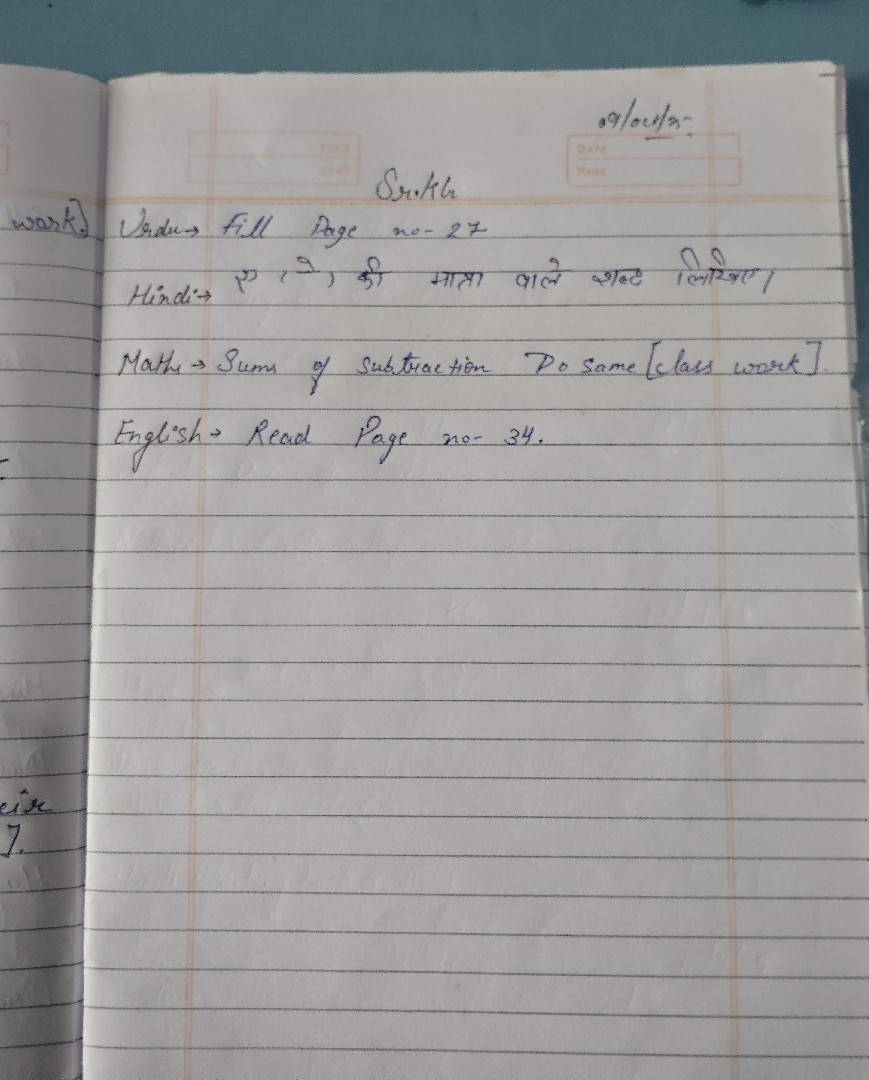 Sr.KG
work] Urdu→ Fill Page no- 27
Hindi→ ए ( े ) की मात्रा वाले शब्द लिखिए।
Maths→ Sums of Subtraction Do same [class work].
English→ Read Page no- 34.